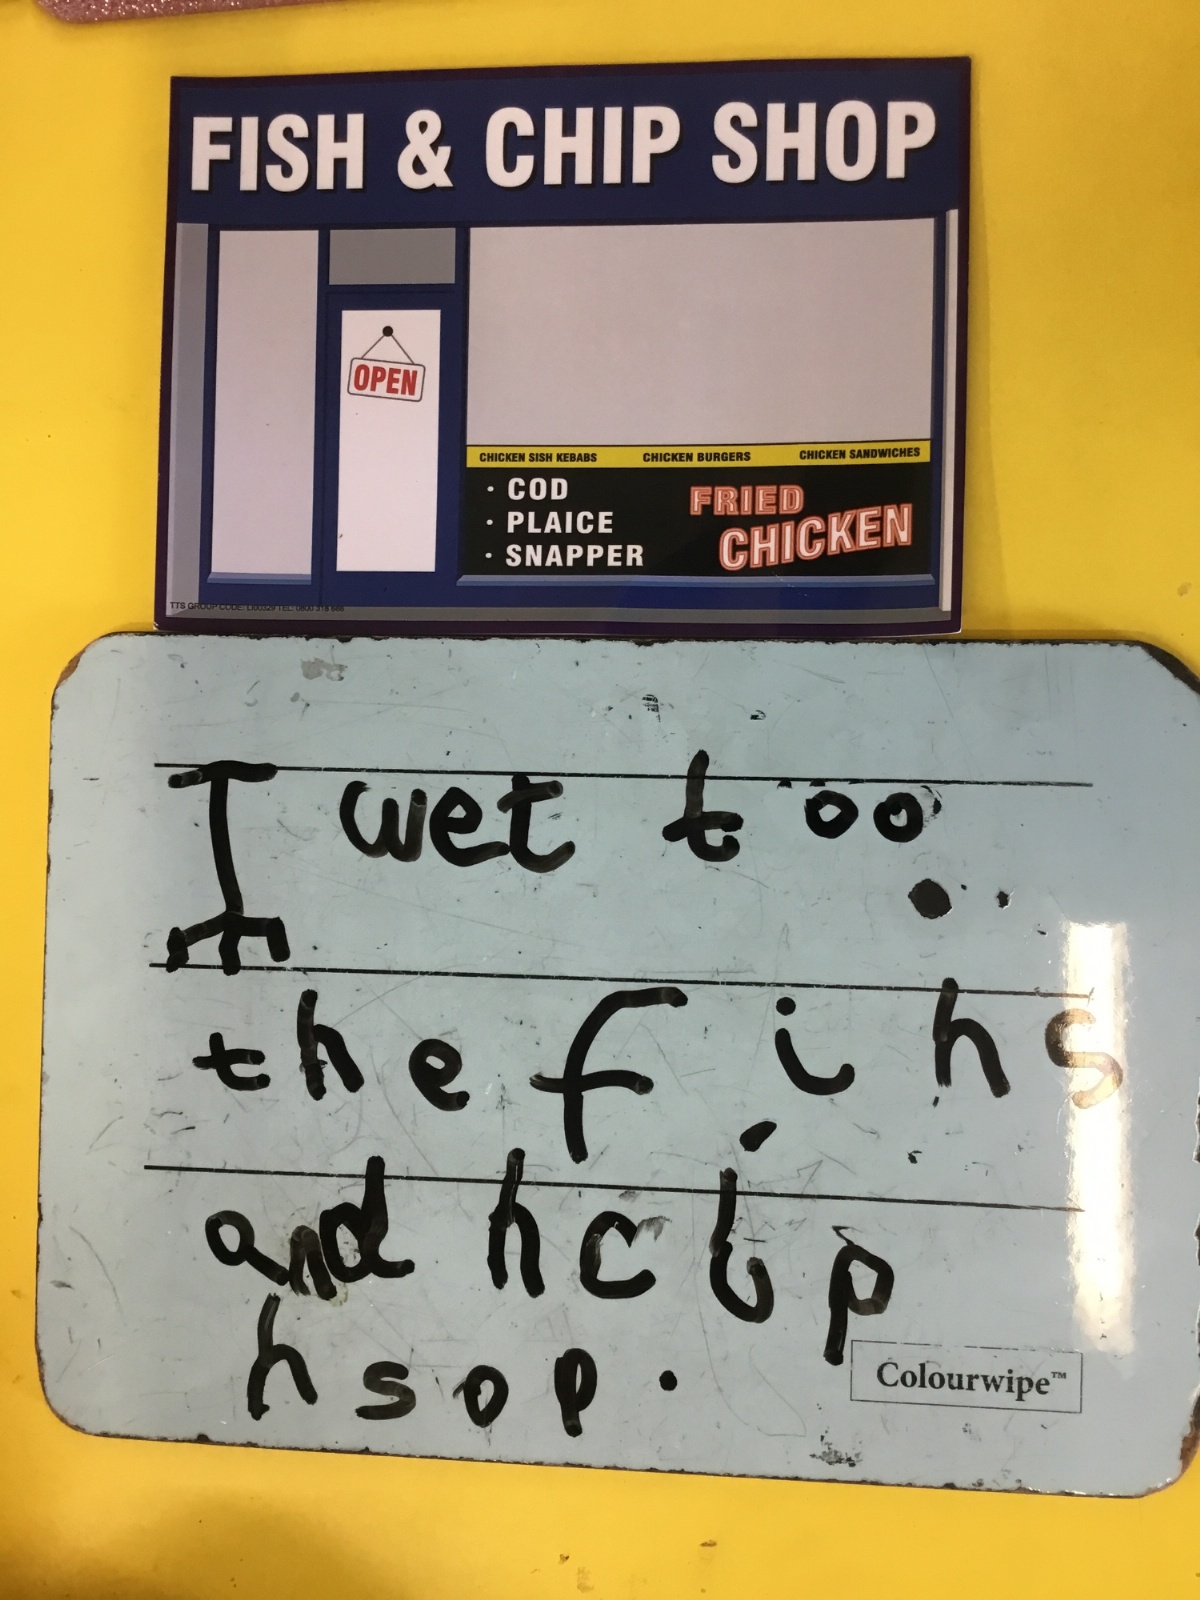 FISH & CHIP SHOP
OPEN
CHICKEN SISH KEBABS CHICKEN BURGERS CHICKEN SANDWICHES
· COD
· PLAICE
· SNAPPER
FRIED
CHICKEN
TTS GROUP CODE: L00329 TEL: 0800 318 686
I wet too
the fihs
and hcip
hsop.
Colourwipe™